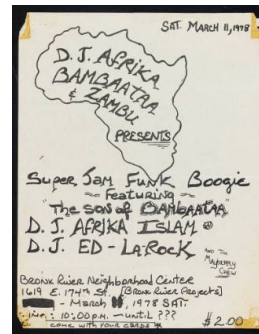 SAT. MARCH 11, 1978
D.J. AFRIKA
BAMBAATAA
& ZAMBU
PRESENTS
Super Jam Funk Boogie
FEATURING
"The SON OF BAMBAATAA"
D.J. AFRIKA ISLAM
D.J. ED-LA-ROCK
AND THE
CREW
BRONX RIVER Neighborhood Center
1619 E. 174TH ST. (BRONX RIVER Projects)
- MARCH 11, 1978 SAT.
: 10:00 P.M. - UNTIL ???
COME WITH YOUR
$2.00